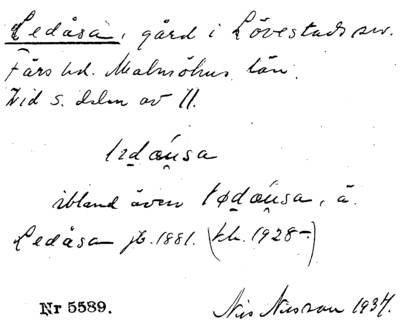 Ledåsa, gård i Lövestads sn.
Färs hd. Malmöhus län.
Vid s. delen av
ibland även, ä.
Ledåsa jb. 1881. (kb. 1928-)
Nr 5589. Nils Nilsson 1934.